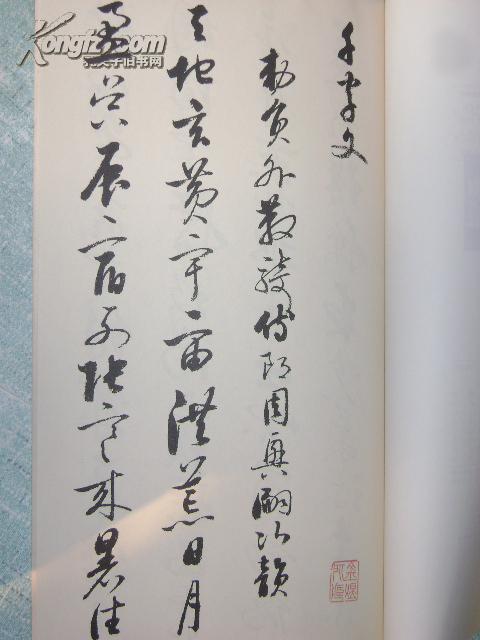 千字文
勅員外散騎侍郎周興嗣次韻
天地玄黄宇宙洪荒日月
盈昃辰宿列張寒来暑往
Kongfz.com
孔夫子旧书网